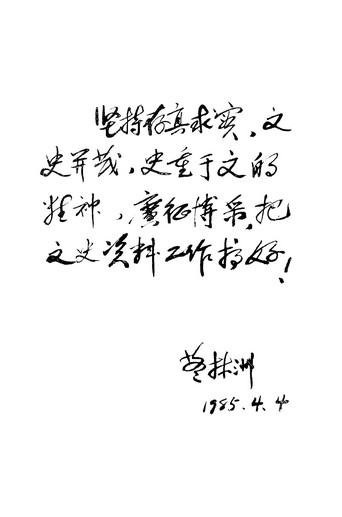 坚持存真求实，文
史并茂，史重于文的
精神，广征博采，把
文史资料工作搞好！
林洲
1985.4.4